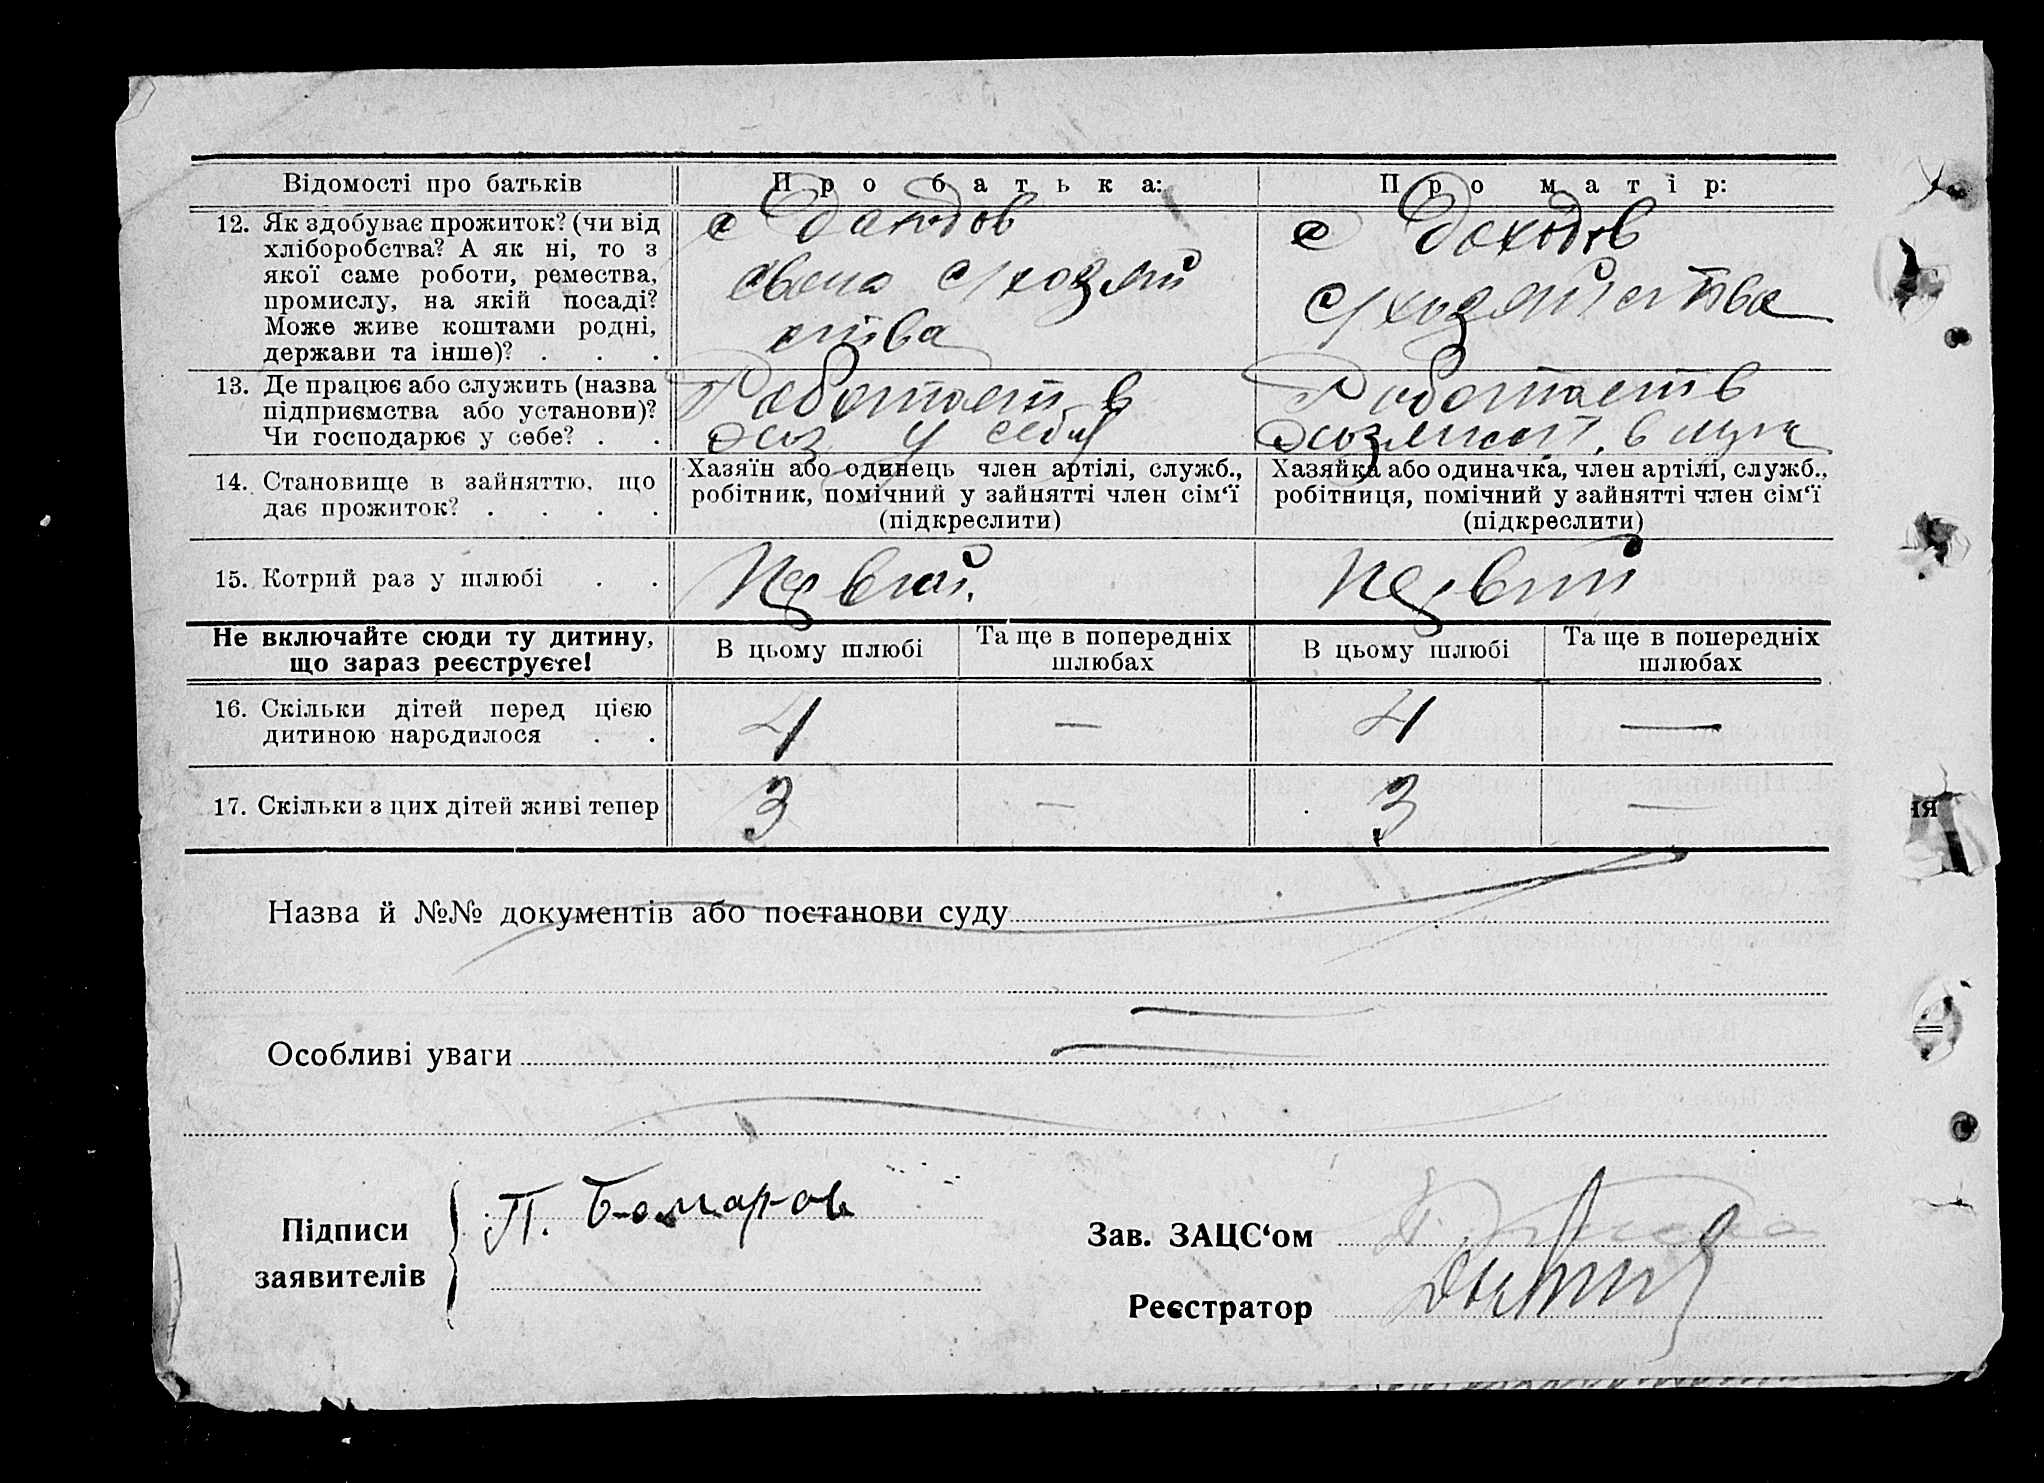 Відомості про батьків
Про батька:
Про матір:
12. Як здобуває прожиток? (чи від
хліборобства? А як ні, то з
якої саме роботи, ремества,
промислу, на якій посаді?
Може живе коштами родні,
держави та інше)? . . .
с доходов
свого с/хозяй
ства
с доходов
с/хозяйства
13. Де працює або служить (назва
підприємства або установи)?
Чи господарює у себе? . .
Работает в
хоз у себя
Работает в
14. Становище в зайняттю, що
дає прожиток? . . . .
Хазяїн або одинець член артілі, служб.,
робітник, помічний у зайнятті член сім‘ї
(підкреслити)
Хазяйка або одиначка, член артілі, служб.,
робітниця, помічний у зайнятті член сім‘ї
(підкреслити)
15. Котрий раз у шлюбі . .
Первий.
Первий
Не включайте сюди ту дитину,
що зараз реєструєте!
В цьому шлюбі
Та ще в попередніх
шлюбах
В цьому шлюбі
Та ще в попередніх
шлюбах
16. Скільки дітей перед цією
дитиною народилося . .
4 — 4 —
17. Скільки з цих дітей живі тепер
3 — 3 —
ня
Назва й №№ документів або постанови суду
Особливі уваги
Підписи
заявителів
П. Бомаров
Зав. ЗАЦС‘ом
Реєстратор